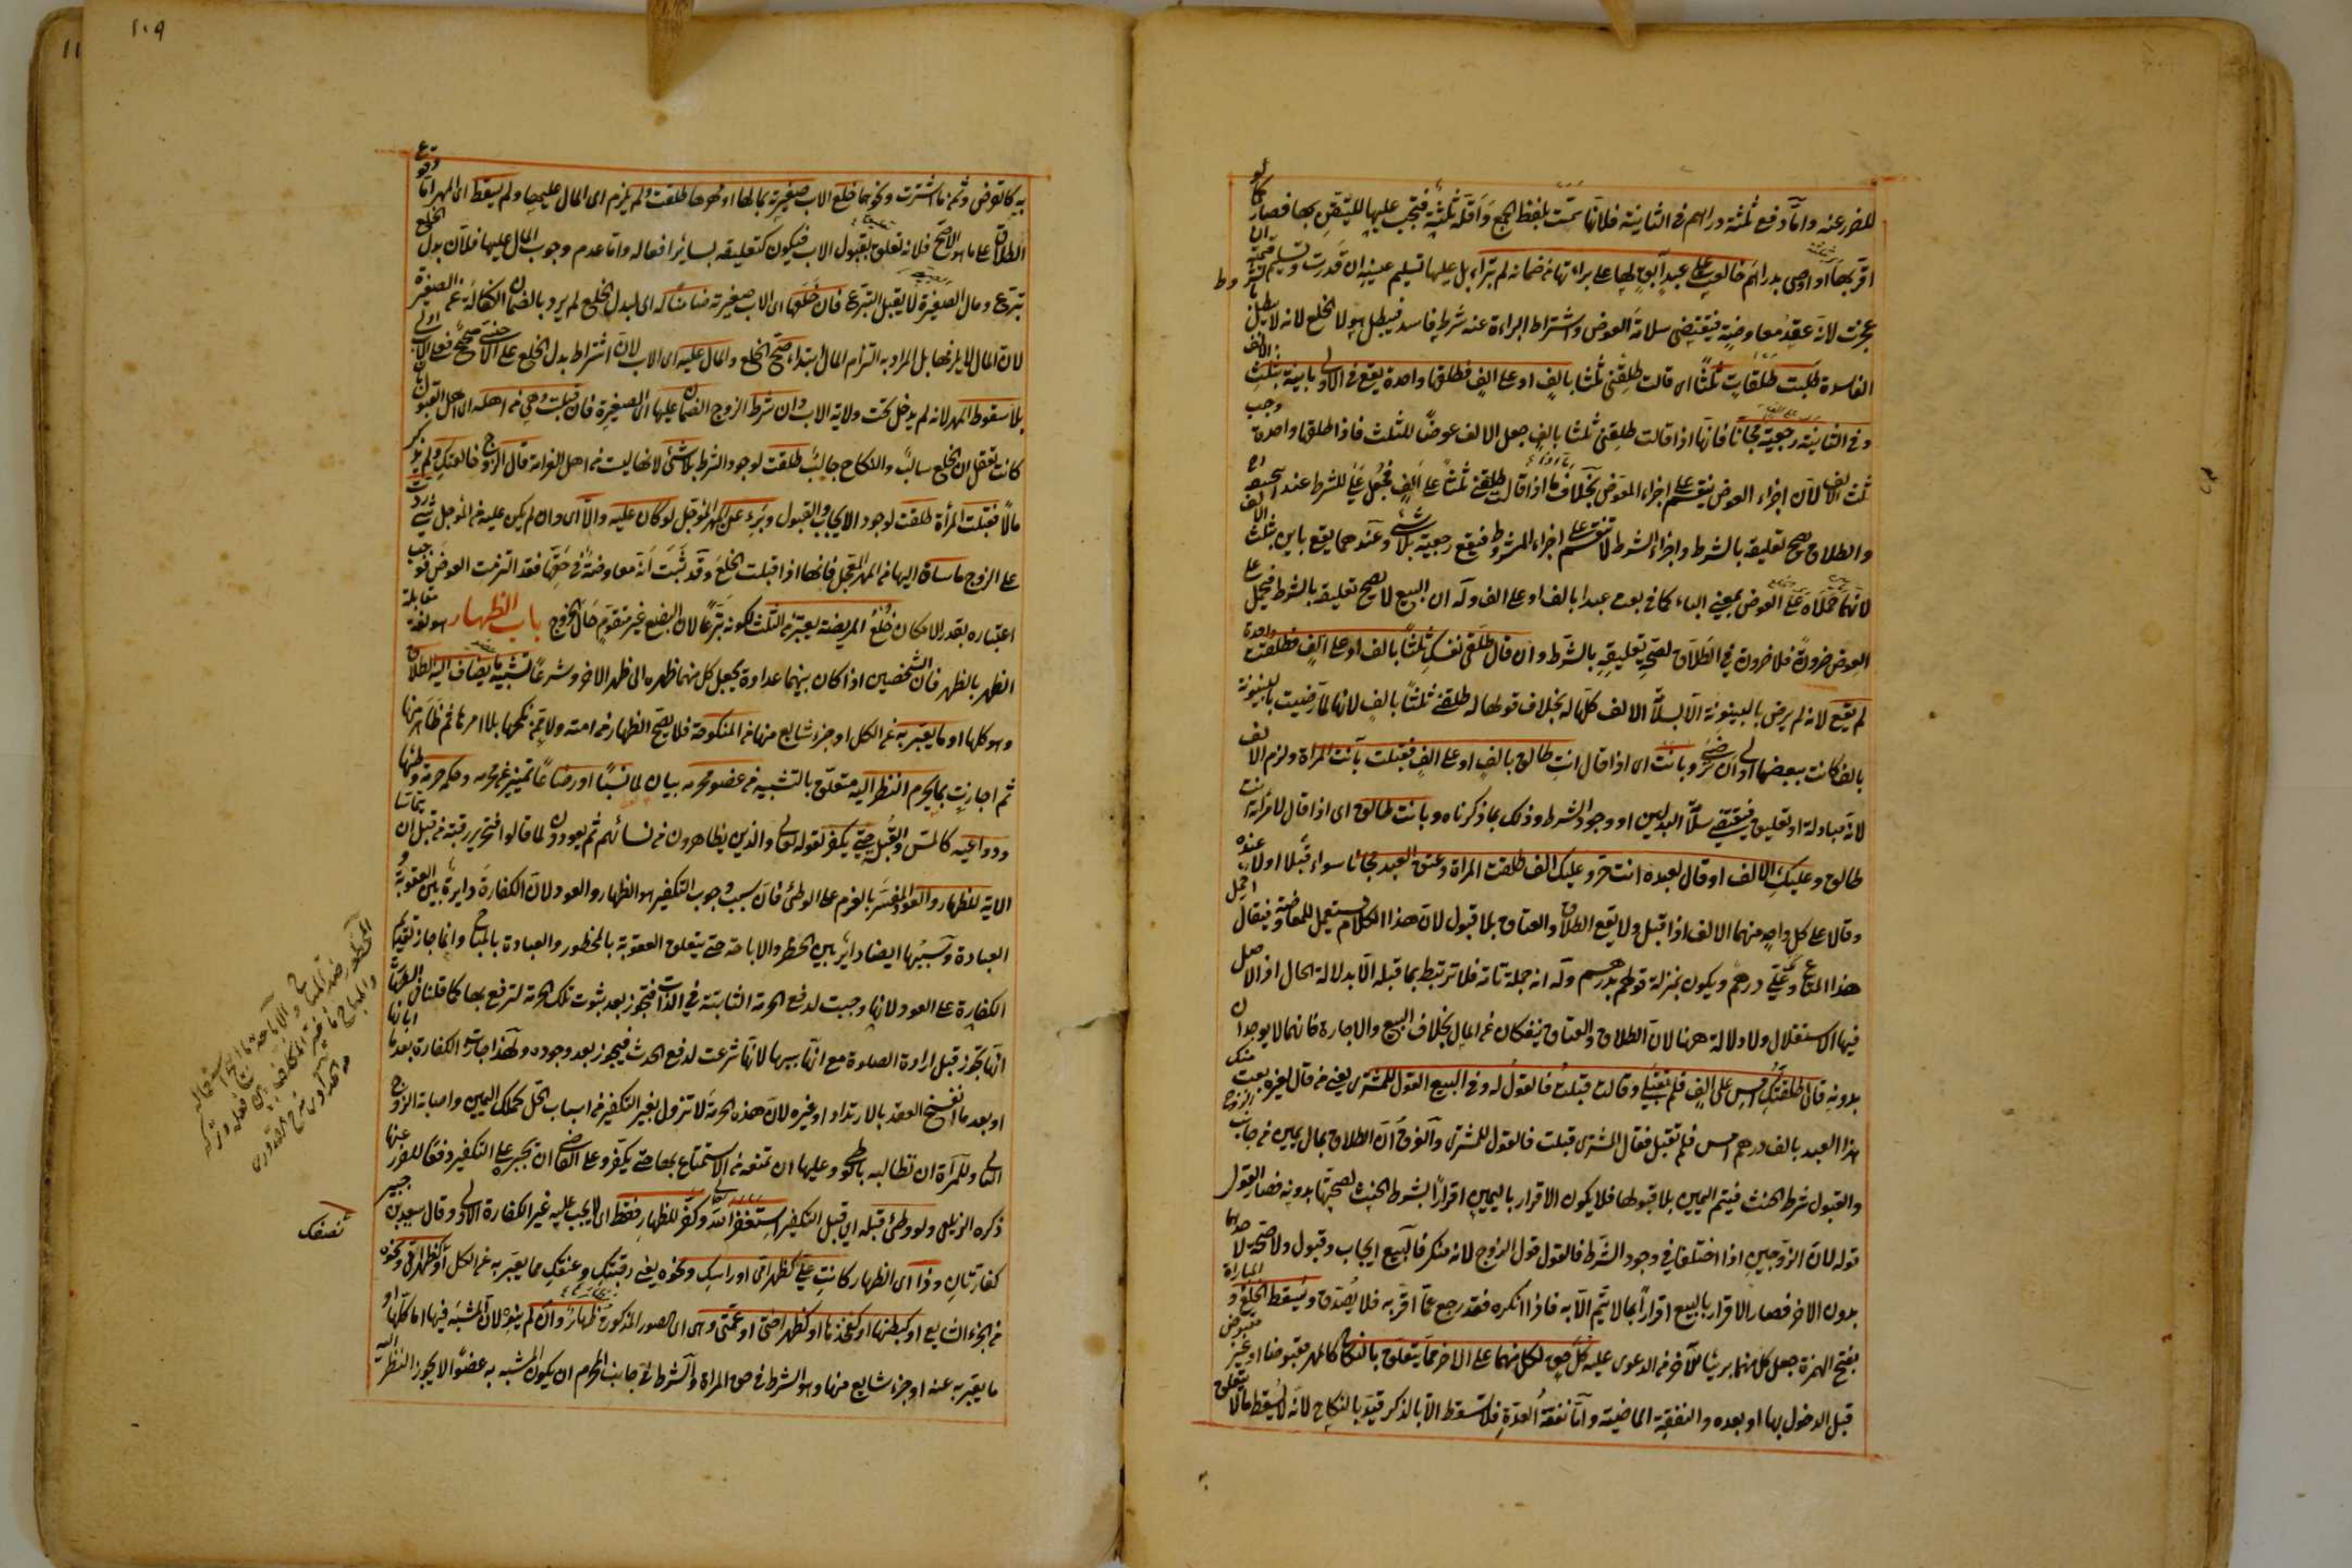 للضرر عنه واما دفع ثلثة دراهم فى الثانية فلانها سمت بلفظ الجمع واقله ثلثة فتجب عليها للتيقن بها فصار كما لو
اقر بها او اوصى بدراهم خالعت على عبد آبق لها على براءتها من ضمانه لم تبراء بل عليها تسليم عينه ان قدرت وتسليم قيمته ان
عجزت لانه عقد معاوضة فيقتضى سلامة العوض واشتراط البراءة عنه شرط فاسد فيبطل هو لا الخلع لانه لا يبطل
الفاسدة طلبت طلقات ثلثا اى قالت طلقنى ثلثا بالف او على الف فطلقها واحدة يقع فى الاولى باينة بثلث الالف
وفى الثانية رجعية مجانا فانها اذا قالت طلقنى ثلثا بالف جعل الالف عوضا للثلث فاذا طلقها واحدة وجب
ثلث الالف لان اجزاء العوض ينقسم على اجزاء المعوض بخلاف ما اذا قالت طلقنى ثلثا على الف فجعل على للشرط عند ابى حنيفة رح
والطلاق يصح تعليقه بالشرط واجزاء الشرط لا تنقسم على اجزاء المشروط فيقع رجعية بلا شئ وعندهما يقع باين بثلث الالف
لانهما حملاه على العوض بمعنى الباء كما فى بعت عبدا بالف او على الف وله ان البيع لا يصح تعليقه بالشرط فيحمل على
العوض ضرورة فلا ضرورة فى الطلاق لصحة تعليقه بالشرط وان قال طلقى نفسك ثلثا بالف او على الف فطلقت واحدة
لم يقع لانه لم يرض بالبينونة الا بسلامة الالف كلها له بخلاف قولها له طلقنى ثلثا بالف لانها لما رضيت بالبينونة
بالف كانت ببعضها اولى ان ترضى وبانت اى اذا قال انت طالق بالف او على الف فقبلت بانت المراة ولزم الالف
لانه مبادلة او تعليق فيقتضى سلامة البدلين او وجود الشرط وذلك بما ذكرناه وبانت طالق اى اذا قال لامراته انت
طالق وعليك الالف او قال لعبده انت حر وعليك الف طلقت المراة وعتق العبد مجانا سواء قبلا او لا عنده
وقالا على كل واحد منهما الالف اذا قبل ولا يقع الطلاق والعتاق بلا قبول لان هذا الكلام يستعمل للمعاوضة فيقال احمل
هذا المتاع ولك على درهم ويكون بمنزلة قولهم بدرهم وله انه جملة تامة فلا ترتبط بما قبله الا بدلالة الحال اذ الاصل
فيها الاستقلال ولا دلالة ههنا لان الطلاق والعتاق ينفكان عن المال بخلاف البيع والاجارة فانهما لا يوجدان
بدونه قال طلقتك امس على الف فلم تقبلى وقالت قبلت فالقول له وفى البيع القول للمشترى يعنى من قال لغيره بعت منك
هذا العبد بالف درهم امس فلم تقبل فقال المشترى قبلت فالقول للمشترى والفرق ان الطلاق بمال يمين من جانب الزوج
والقبول شرط الحنث فيتم اليمين بلا قبولها فلا يكون الاقرار باليمين اقرارا بالشرط الحنث لصحتها بدونه فصار القول
قوله لان الزوجين اذا اختلفا فى وجود الشرط فالقول قول الزوج لانه منكر فالبيع ايجاب وقبول ولا صحة لاحدهما
بدون الاخر فصار الاقرار بالبيع اقرارا بما لا يتم الا به فاذا انكره فقد رجع عما اقر به فلا يصدق ويسقط الخلع والمباراة
بفتح الهمزة جعل كل منهما بريئا للآخر من الدعوى عليه كل حق لكل منهما على الاخر مما يتعلق بالنكاح كالمهر مقبوضا او غير مقبوض
قبل الدخول بها او بعده والنفقة الماضية واما نفقة العدة فلا تسقط الا بالذكر قيد بالنكاح لانه لا يسقط ما لا يتعلق
١٠٩
به كالقرض وثمن ما اشترت ونحوهما خلع الاب صغيرته بمالها او مهرها طلقت ولم يلزم اى المال عليها ولم يسقط اى المهر اما وقوع
الطلاق على ما هو الاصح فلانه تعلق بقبول الاب فيكون كتعليقه بسائر افعاله واما عدم وجوب المال عليها فلان بدل الخلع
تبرع ومال الصغيرة لا يقبل التبرع فان خلعها اى الاب صغيرته ضامنا له اى لبدل الخلع لم يرد بالضمان الكفالة عن الصغيرة
لان المال لا يلزمها بل المراد به التزام المال ابتداء صح الخلع والمال عليه اى الاب لان اشتراط بدل الخلع على الاجنبى صحيح فعلى الاب اولى
بلا سقوط المهر لانه لم يدخل تحت ولاية الاب وان شرط الزوج الضمان عليها اى الصغيرة فان قبلت وهى من اهله اى اهل القبول بان
كانت تعقل ان الخلع سالب والنكاح جالب طلقت لوجود الشرط بلا شئ لانها ليست من اهل الغرامة قال الزوج خالعتك ولم يذكر
مالا فقبلت المرأة طلقت لوجود الايجاب والقبول وبرئ عن المهر المؤجل لو كان عليه والا اى وان لم يكن عليه من المؤجل شئ ردت
على الزوج ما ساق اليها من المهر المعجل فانها اذا قبلت الخلع وقد ثبت انه معاوضة فى حقها فقد التزمت العوض فوجب
اعتباره بقدر الامكان خلع المريضة يعتبر من الثلث لكونه تبرعا لان البضع غير متقوم حال الخروج باب الظهار هو لغة مقابلة
الظهر بالظهر فان الشخصين اذا كان بينهما عداوة يجعل كل منهما ظهره الى ظهر الاخر وشرعا تشبيه ما يضاف اليه الطلاق
وهو كلها او ما يعبر به عن الكل او جزء شايع منها من المنكوحة فلا يصح الظهار من امته ولا ممن نكحها بلا امرها ثم ظاهر منها
ثم اجازت بما يحرم النظر اليه متعلق بالتشبيه من عضو محرمه بيان لما نسبا او رضاعا تمييز عن محرمه وحكمه حرمة وطئها
ودواعيه كالمس والقبلة حتى يكفر لقوله تعالى والذين يظاهرون من نسائهم ثم يعودون لما قالوا فتحرير رقبة من قبل ان يتماسا
الاية للظهار والعود المفسر بالعزم على الوطئ فان سبب وجوب التكفير هو الظهار والعود لان الكفارة دايرة بين العقوبة و
العبادة وسببها ايضا داير بين الحظر والاباحة حتى يتعلق العقوبة بالمحظور والعبادة بالمباح وانما جاز تقديم
الكفارة على العود لانها وجبت لدفع الحرمة الثابتة فى الذات فتجوز بعد ثبوت تلك الحرمة لترفع بها كما قلنا فى الطهارة
انها تجوز قبل ارادة الصلوة مع انها سببها لانها شرعت لدفع الحدث فيجوز بعد وجوده ولهذا جازت الكفارة بعد ما ابانها
او بعد ما انفسخ العقد بالارتداد او غيره لان هذه الحرمة لا تزول بغير التكفير من اسباب الحل كملك اليمين واصابة الزوج
الثانى وللمرأة ان تطالبه بالوطئ وعليها ان تمنعه من الاستمتاع بها حتى يكفر وعلى القاضى ان تجبره على التكفير دفعا للضرر عنها
ذكره الزيلعى ولو وطئ قبله اى قبل التكفير استغفر الله تعالى وكفر للظهار فقط اى لا يجب عليه غير الكفارة الاولى وقال سعيد بن جبير
كفارتان وذا اى الظهار كانت على كظهر امى او راسك ونحوه يعنى رقبتك وعنقك مما يعبر به عن الكل او كظهر امى ونحوه
من الجزء الشايع او كبطنها او كفخذها او كظهر اختى او عمتى وهى اى الصور المذكورة ظهار وان لم ينوه لان المشبه فيها اما كلها او
ما يعبر به عنه او جزء شايع منها وهو الشرط فى حق المراة والشرط فى جانب المحرم ان يكون المشبه به عضوا لا يجوز النظر اليه
نصفك